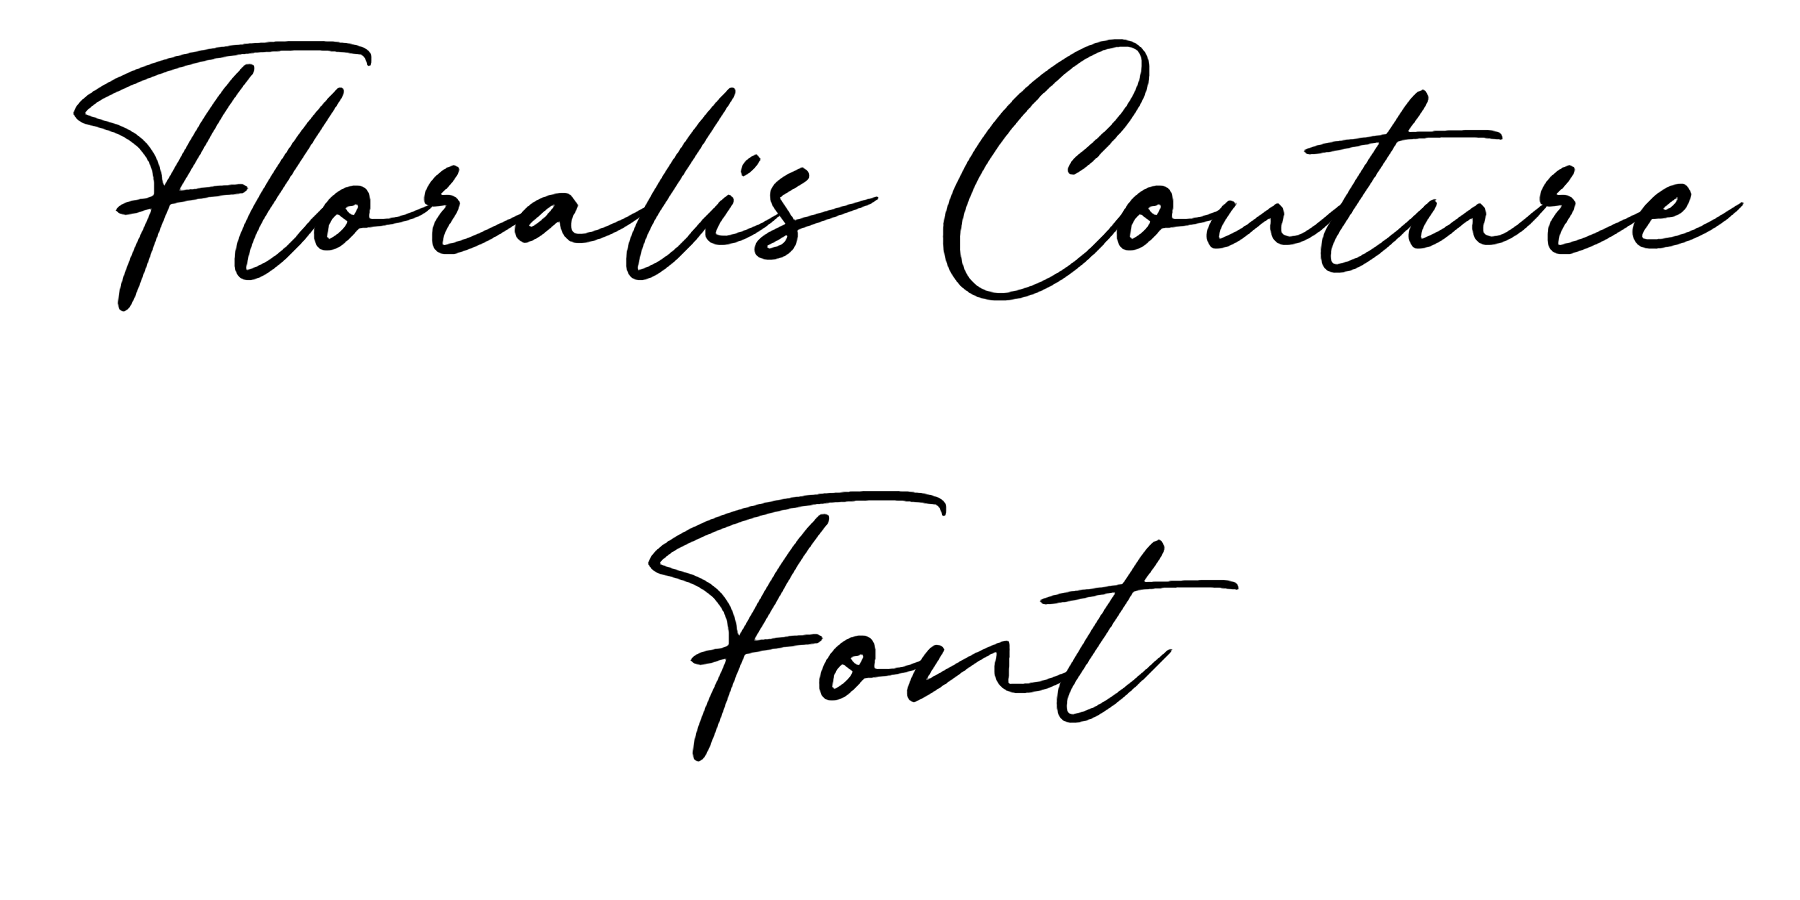 Floralis Couture
Font